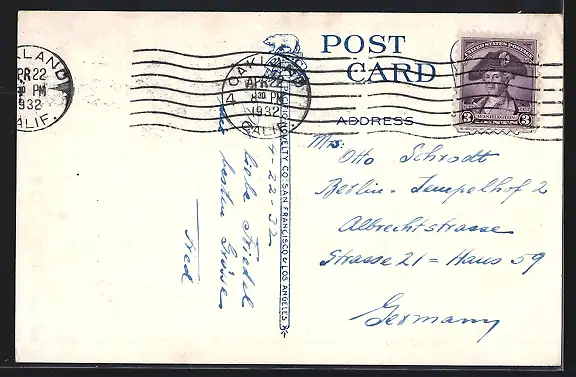 POST
CARD
ADDRESS
UNITED STATES POSTAGE
WASHINGTON
3 CENTS 3
OAKLAND
APR 22
PM
1932
CALIF.
OAKLAND
APR 22
PM
1932
CALIF.
PACIFIC NOVELTY CO. SAN FRANCISCO & LOS ANGELES
4-22-32
liebe Friedel
die besten Grüsse
Fred
Mrs.
Otto Schrodt
Berlin-Tempelhof 2
Albrechtstrasse
Strasse 21 = Haus 59
Germany